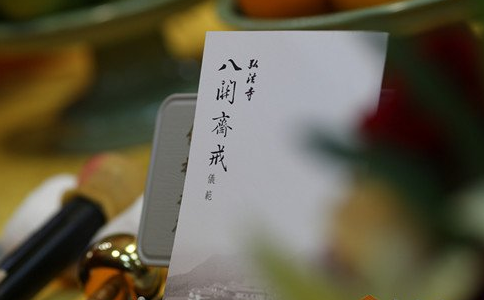 弘法寺
八關齋戒
儀範